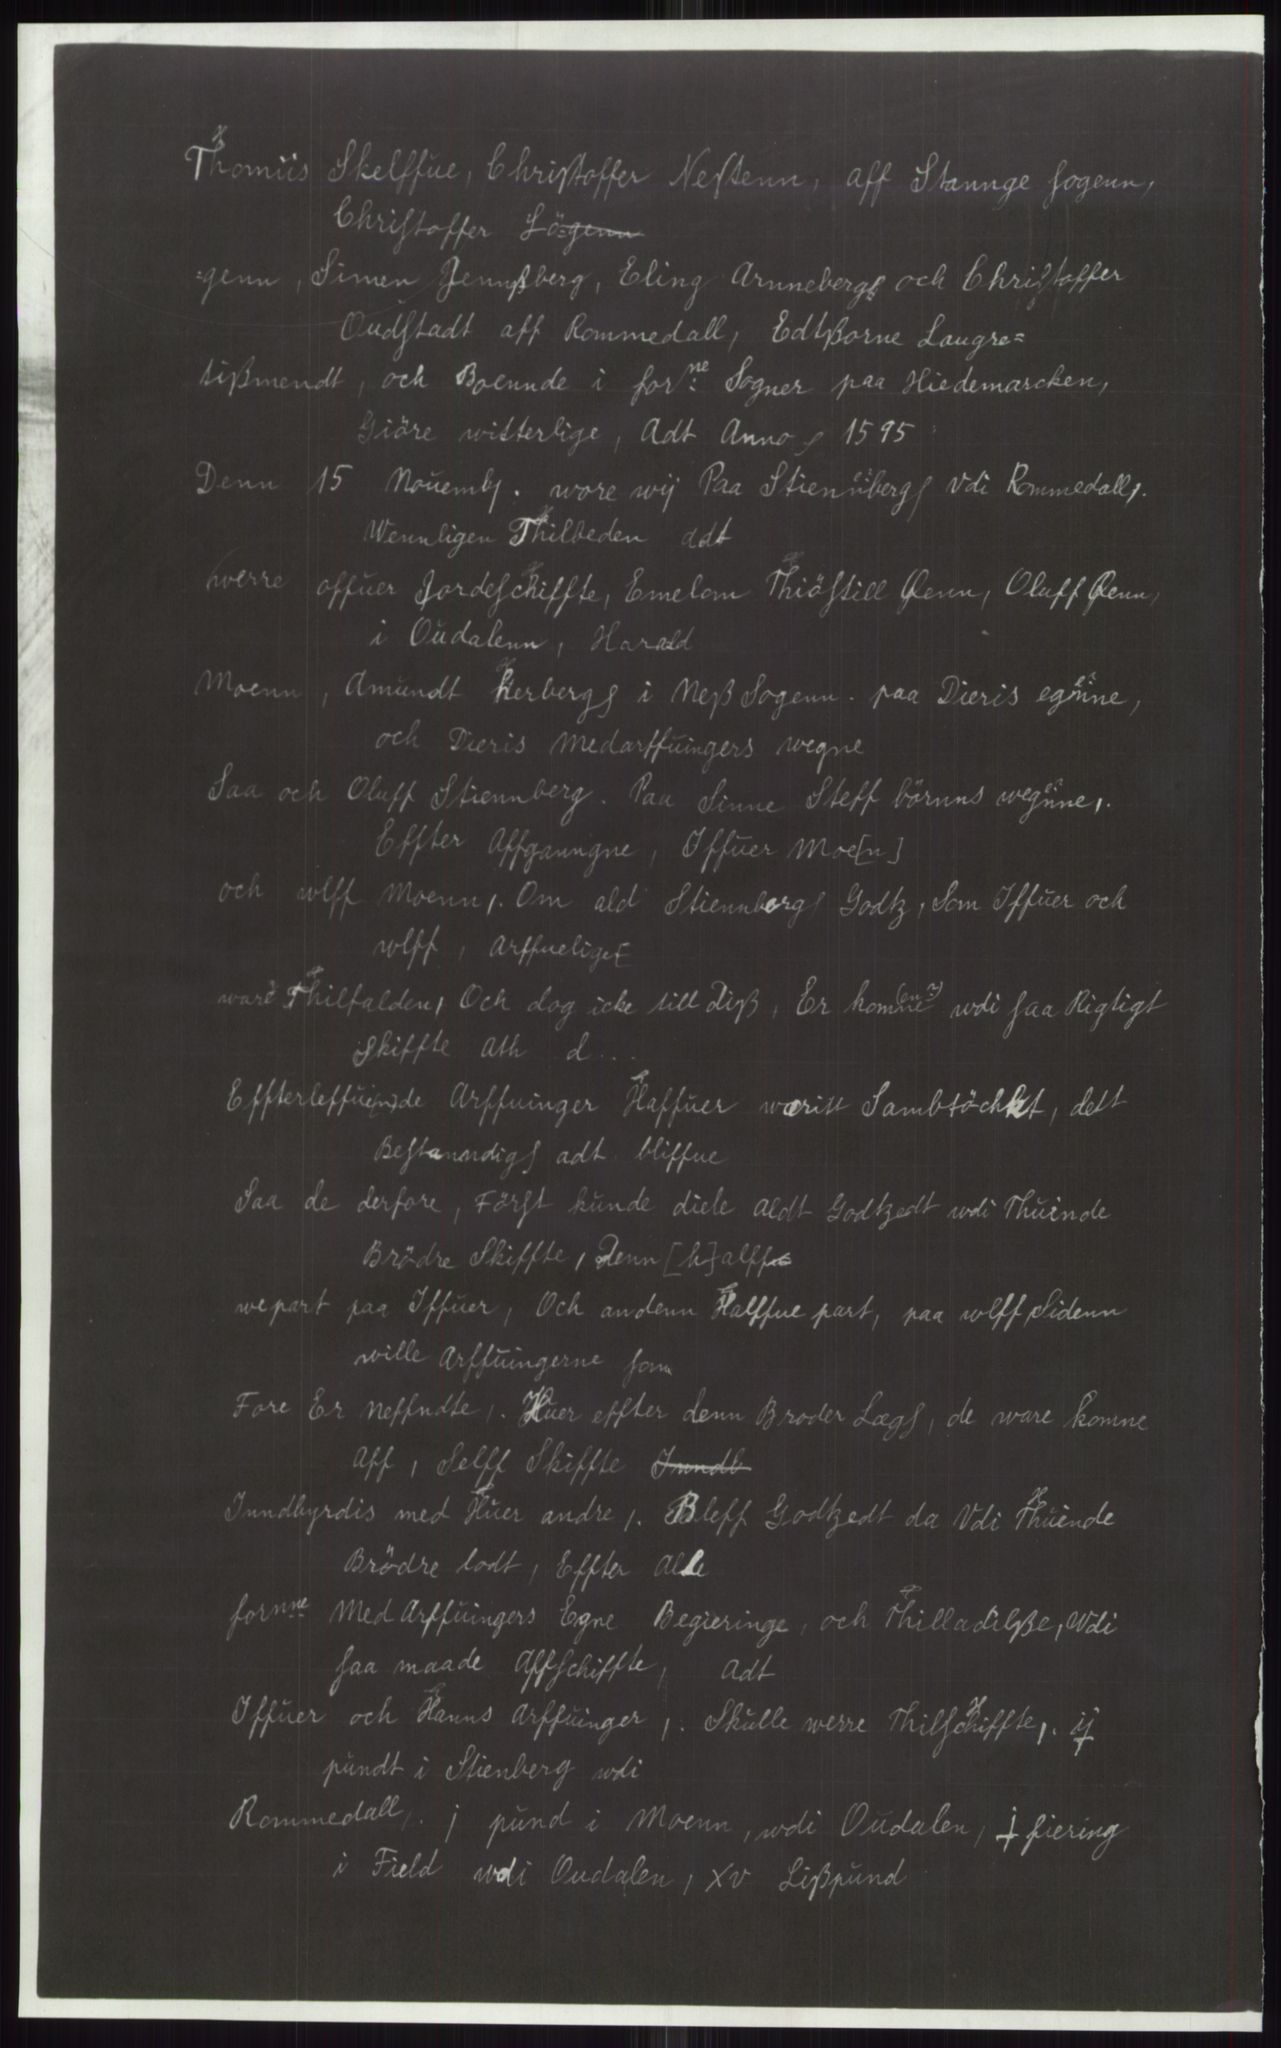 Thomiis Skelffue, Christoffer Nestenn, aff Stannge sogenn,
Christoffer Lö=genn
=genn, Simen Jennßberg, Eling Arnnebergs och Christoffer
Oudstadt aff Rommedall, Edtßorne Laugre=
tißmendt, och Boennde i for ne Sogner paa Hiedemarcken,
Giöre witterlige, Adt Anno 1595
Denn 15 Nouemb. wore wij Paa Stiennbergs Vdi Rommedall,.
Wennligen Thilbeden adt
werre offuer Jordeschiffte, Emelom Thiöstill Øenn, Oluff Øenn,
i Oudalenn, Harald
Moenn, Amundt Herbergs i Neß Sogenn. paa Dieris egnne,
och Dieris Medarffuingers wegne
Saa och Oluff Stiennberg. Paa Sinne Steff börnns wegnne,.
Effter Affganngne, Iffuer Moe[n]
och wlff Moenn,. Om ald Stiennbergs Godtz, Som Iffuer och
wlff, Arffueliget
ware Thilfalden, Och dog icke till Diß, Er komne (en?) wdi saa Rigtigt
Skiffte Ath d...
Effterleffue(n)de Arffuinger Haffuer weritt Sambtöchkt, dett
Bestanndigs adt bliffue
Saa de derfore, Först kunde diele Aldt Godtzedt wdi Thuinde
Brödre Skiffte, Denn [h]alff
wepart paa Iffuer, Och andenn Halffue part, paa wlff, Sidenn
wille Arffuingerne som
Fore Er neffndte,. Huer effter denn Broder Lægs, de ware komne
Aff, Selff Skiffte Inndb
Inndbyrdis med Huer andre,. Bleff Godtzedt da Vdi Thuinde
Brödre lodt, Effter Alle
fornne Med Arffuingers Egne Begieringe, och Thilladelße, Wdi
saa maade Affschiffte, Adt
Iffuer och Hanns Arffuinger,. Skulle werre Thilschiffte,. ij
pundt i Stienberg wdi
Rommedall,. j pund i Moenn, wdi Oudalen, j fiering
i Field wdi Oudalen, xv Lißpund